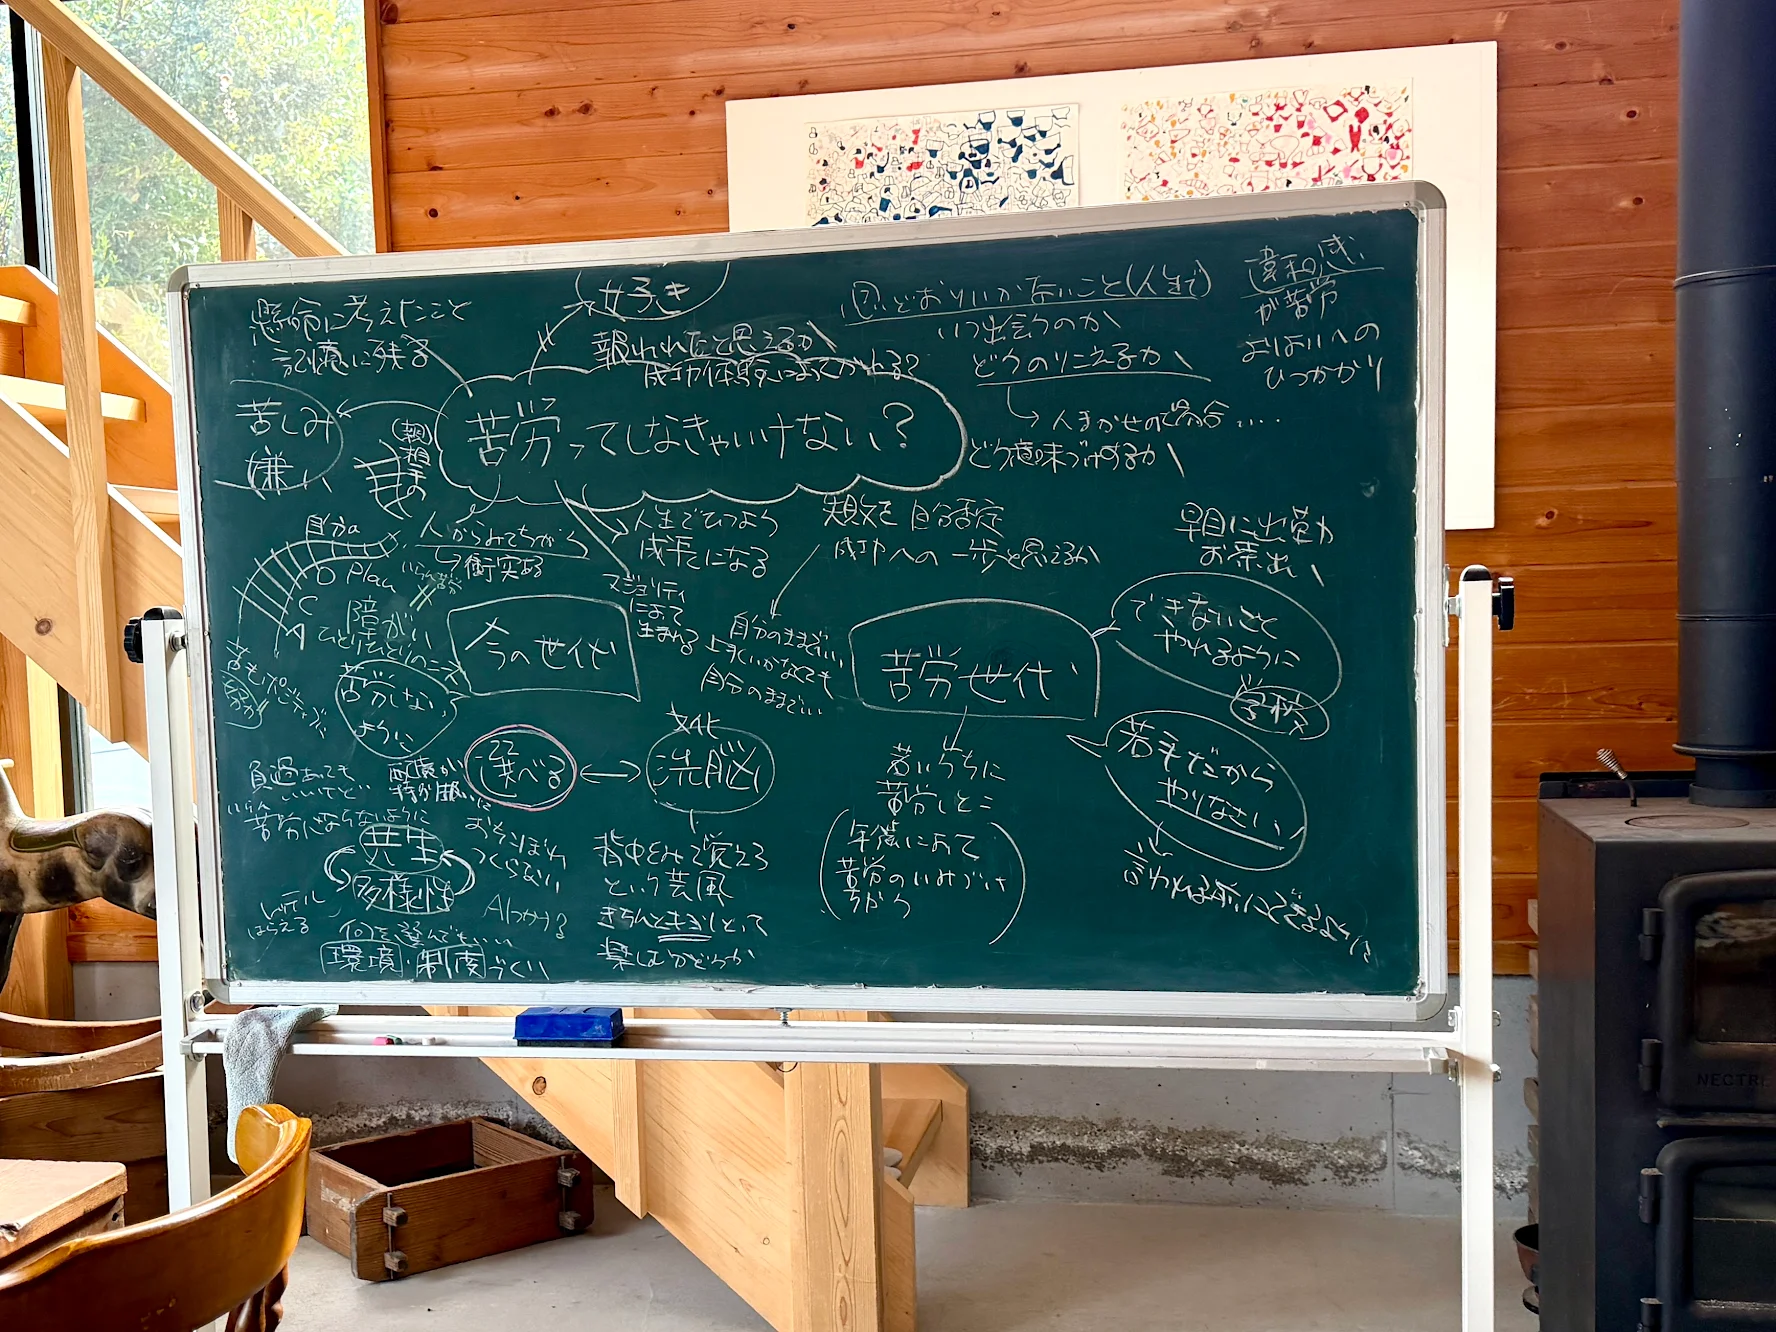 懸命に考えたこと
記憶に残る
好き
報われたと思えるか
成功体験によってかわる?
思いどおりいかないこと(人生で)
いつ出会うのか
どうのりこえるか
人まかせの場合…
どう意味づけするか
違和感
が苦労
よりよいへの
ひっかかり
苦しみ
嫌い
苦労ってしなきゃいけない?
(親)
相手の
自分の
人からみてちがう
衝突ある
D Plan
C
人生でひつよう
成長になる
マジョリティ
によって
生まれる
失敗を 自分否定
成功への 一歩と思えるか
自分のままでいい
上手くいかなくても
自分のままでいい
早目に出勤
お茶出し
障がい
ひとりひとりのニーズ
今の世代
苦労しない
ように
苦労世代
できないこと
やれるように
学校
若手だから
やりなさい
言われる前にできるように
若いうちに
苦労しとこ
年徳によって
苦労のいみづけ
ちがう
選べる
文化
洗脳
背中をみて覚えろ
という芸風
きちんと主張しとって
楽しむかどうか
配慮が
特別扱いに
苦労にならないように
共生
多様性
おちこぼれ
つくらない
レッテル
はらえる
何を選んでもいい
環境・制度づくり
NECTRE